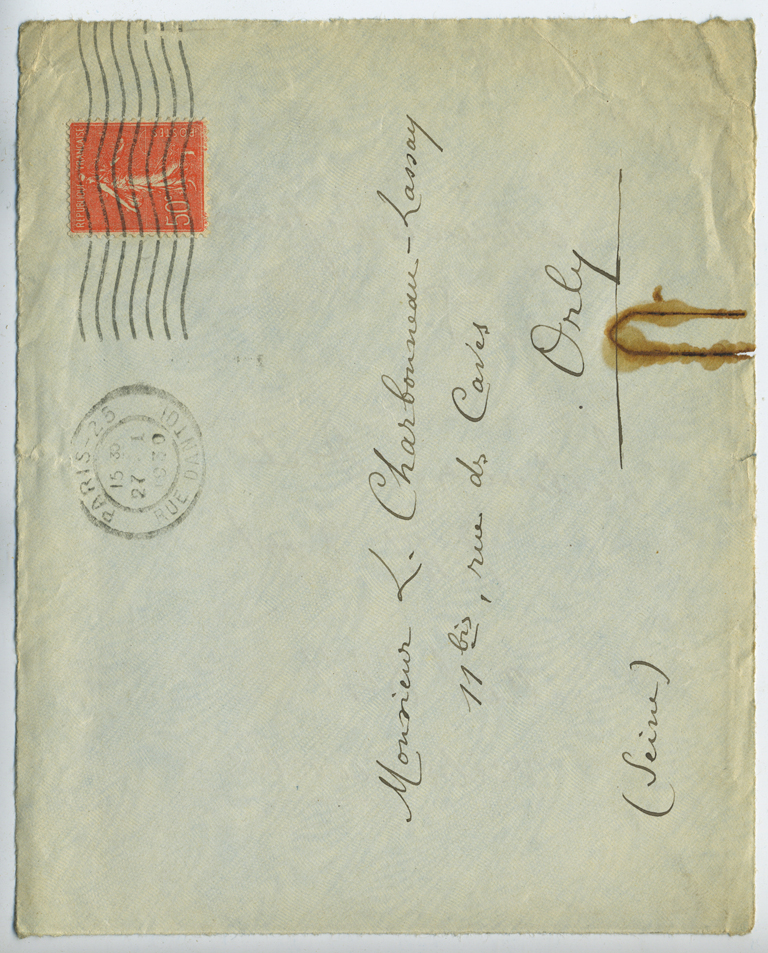 REPUBLIQUE FRANÇAISE
POSTES
50c
PARIS-25
15 30
27 - 1
1930
RUE DANTON
Monsieur L. Charbonneau-Lassay
11 bis, rue des Caves
Orly
(Seine)